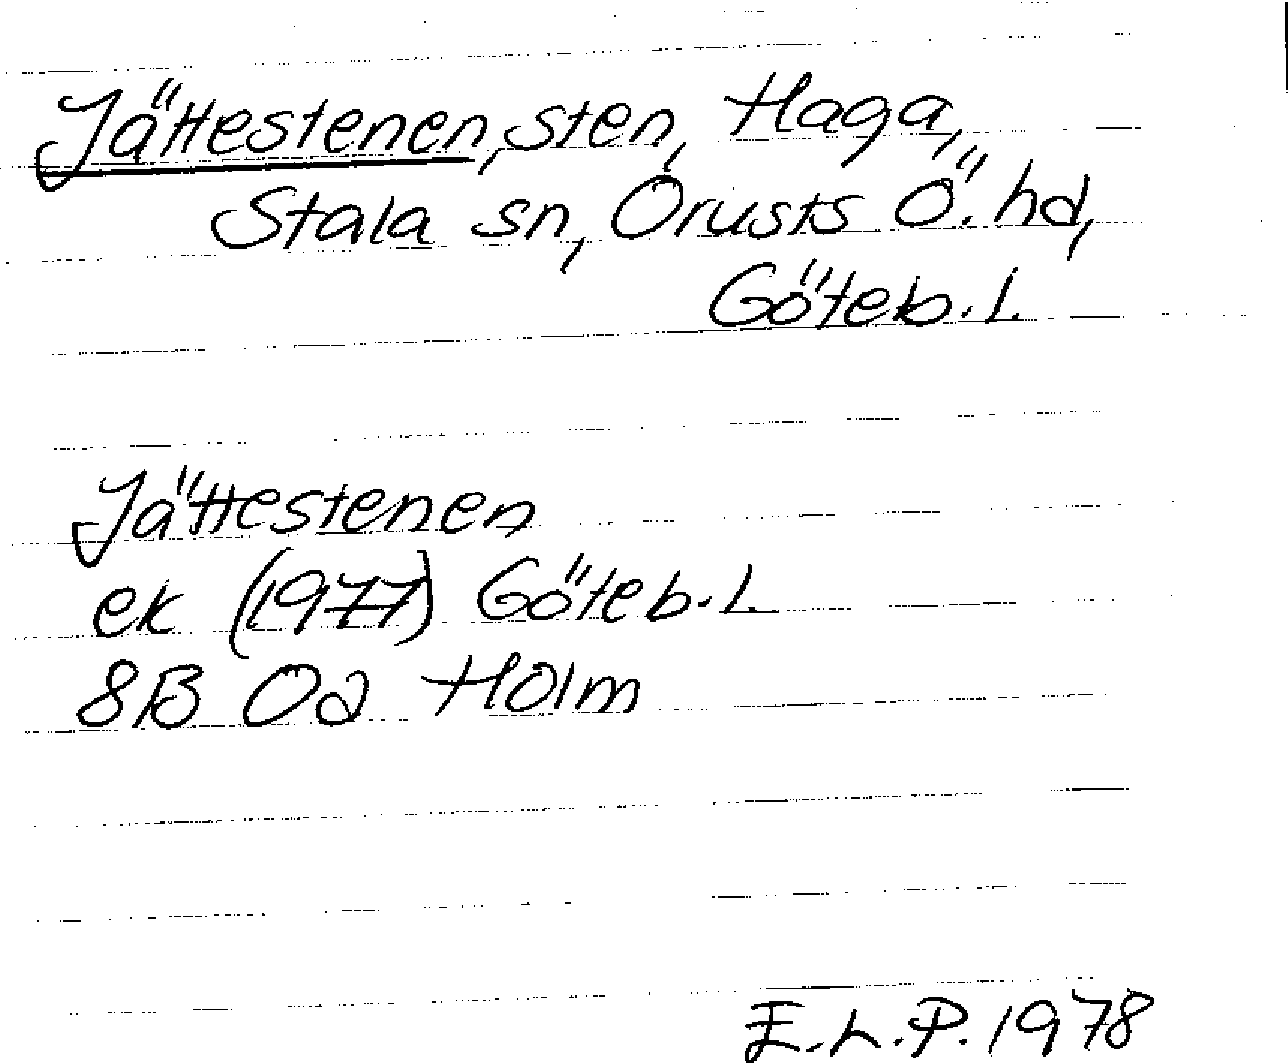 Jättestenen, sten, Haga,
Stala sn, Orusts Ö. hd,
Göteb. l.
Jättestenen
ek (1977) Göteb. l.
8B 0a Holm
E.L.P. 1978